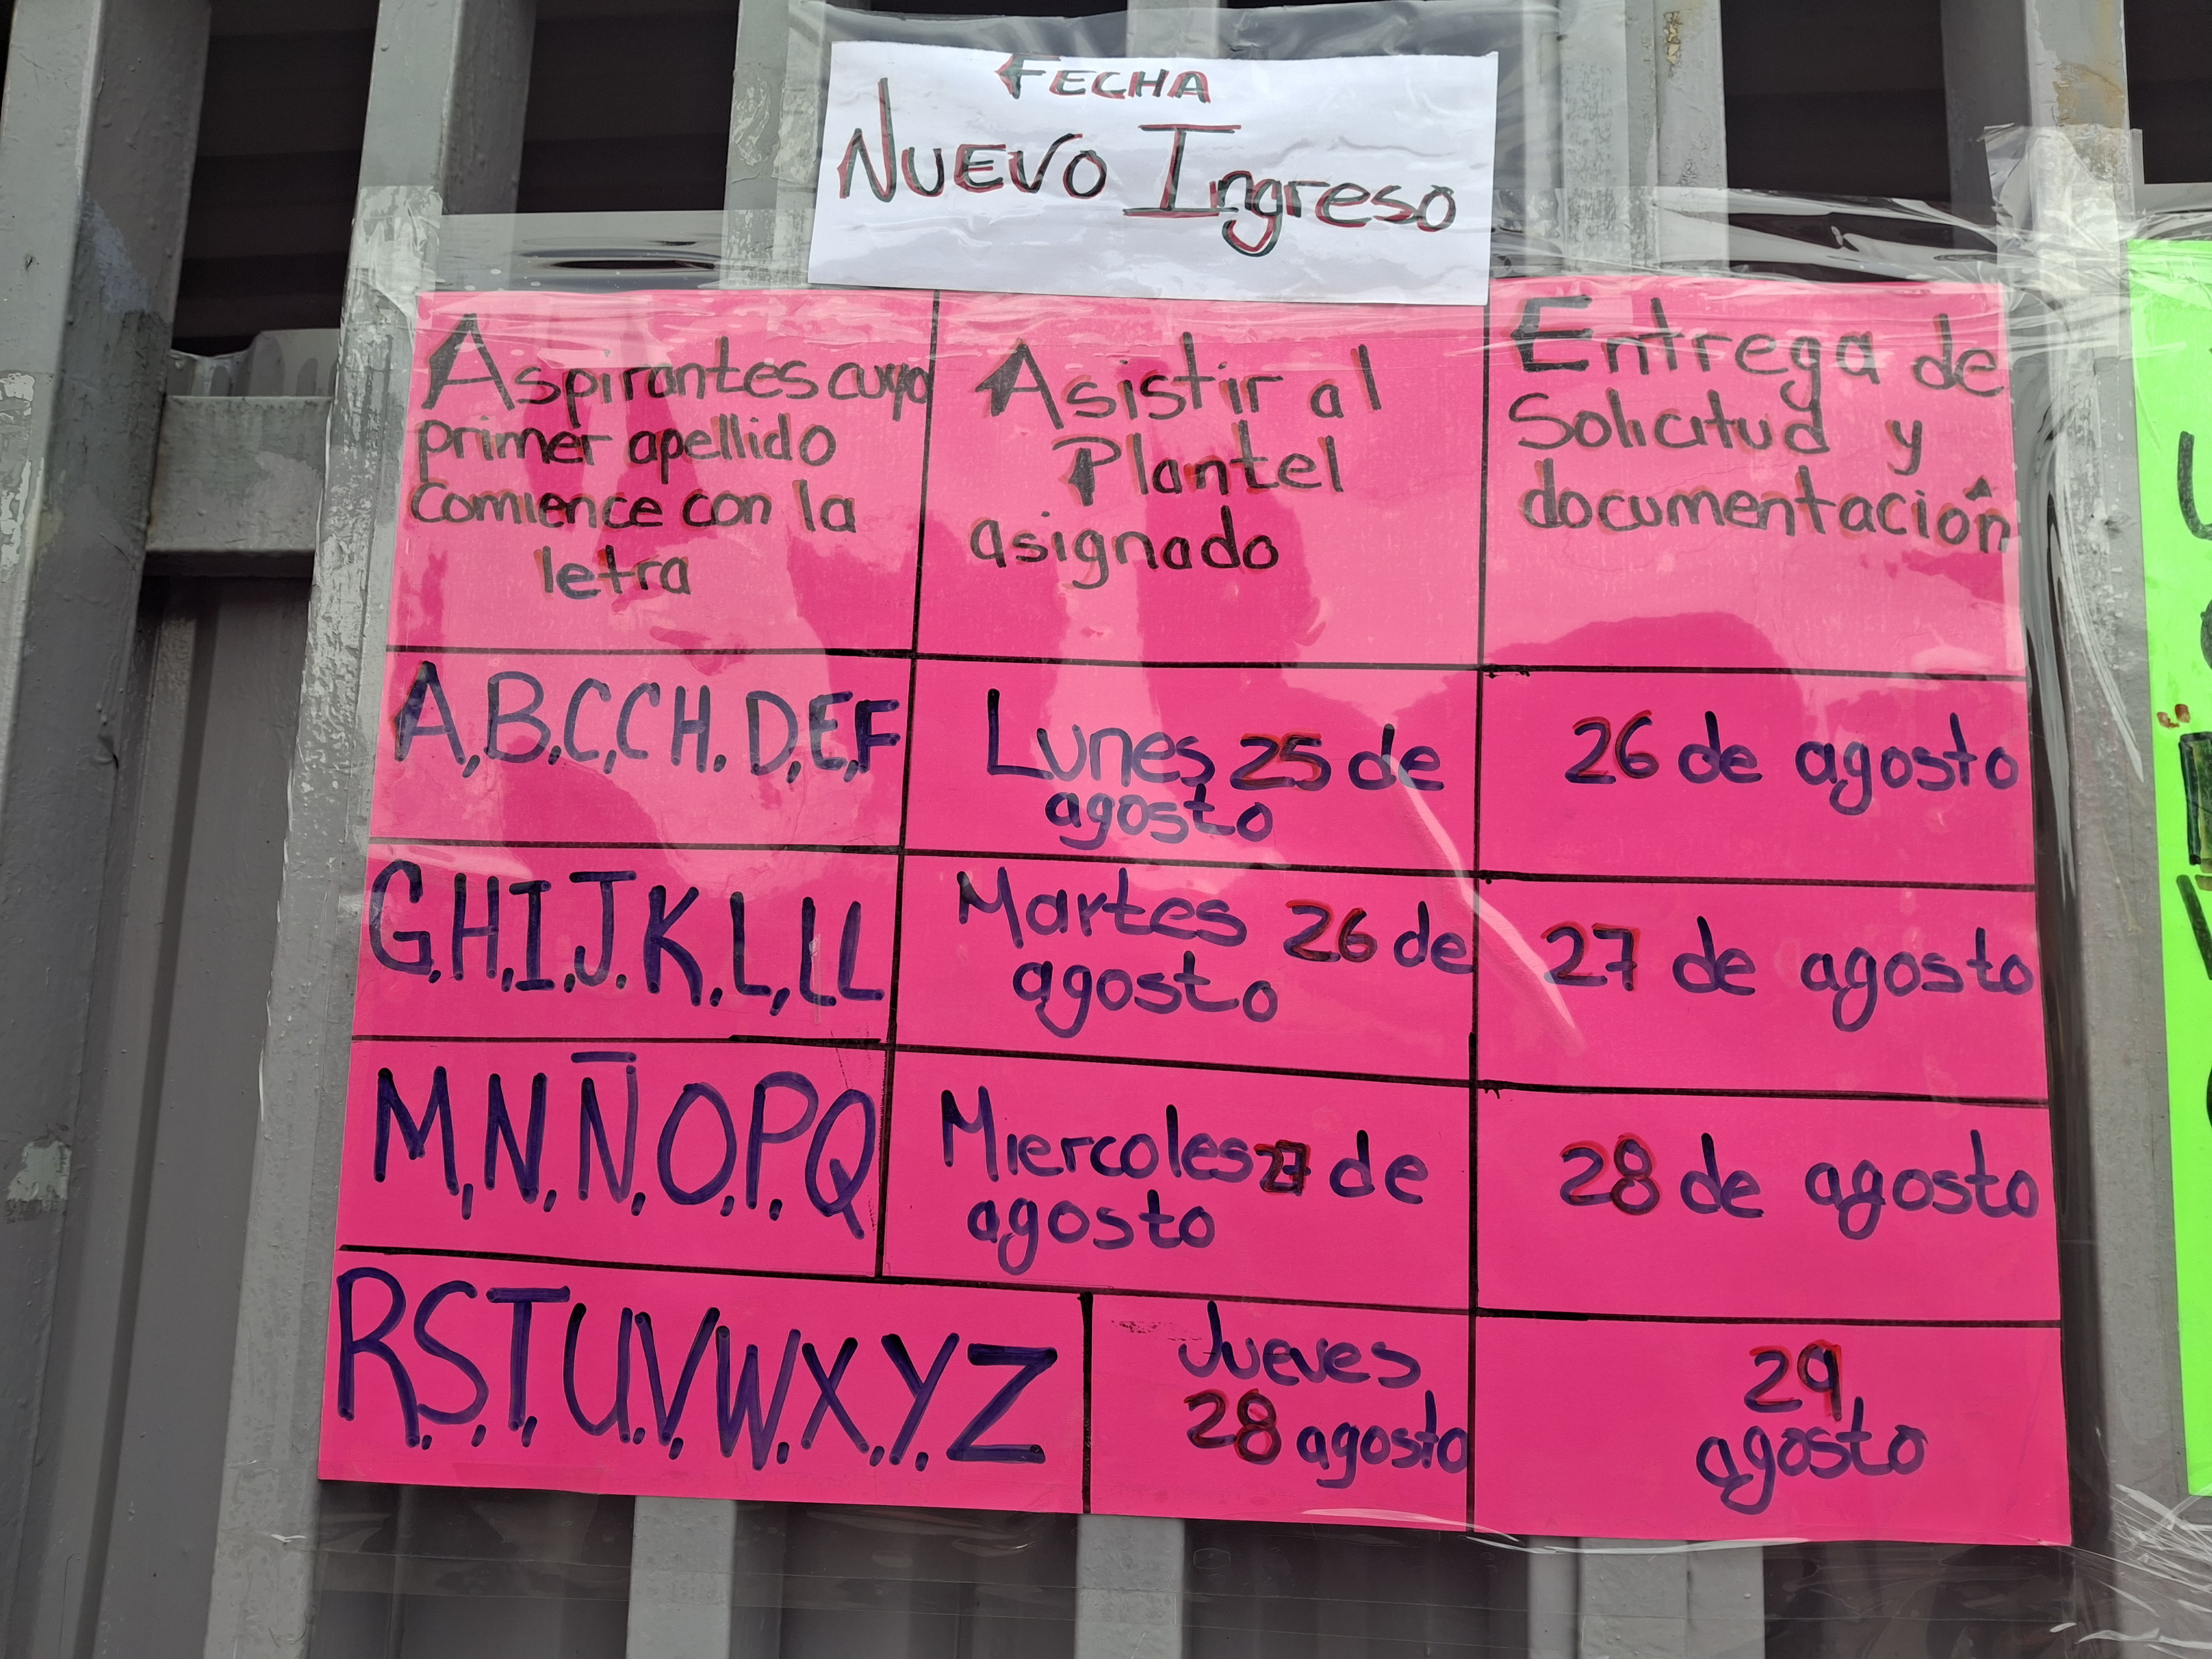 FECHA
NUEVO Ingreso
Aspirantes cuyo
primer apellido
comience con la
letra
Asistir al
Plantel
asignado
Entrega de
Solicitud y
documentación
A,B.C,CH. D,E,F
Lunes 25 de
agosto
26 de agosto
G,H,I,J.K,L,LL
Martes 26 de
agosto
27 de agosto
M,N,Ñ,O,P,Q
Miercoles 27 de
agosto
28 de agosto
R,S,T,U,V,W,X,Y,Z
Jueves
28 agosto
29
agosto